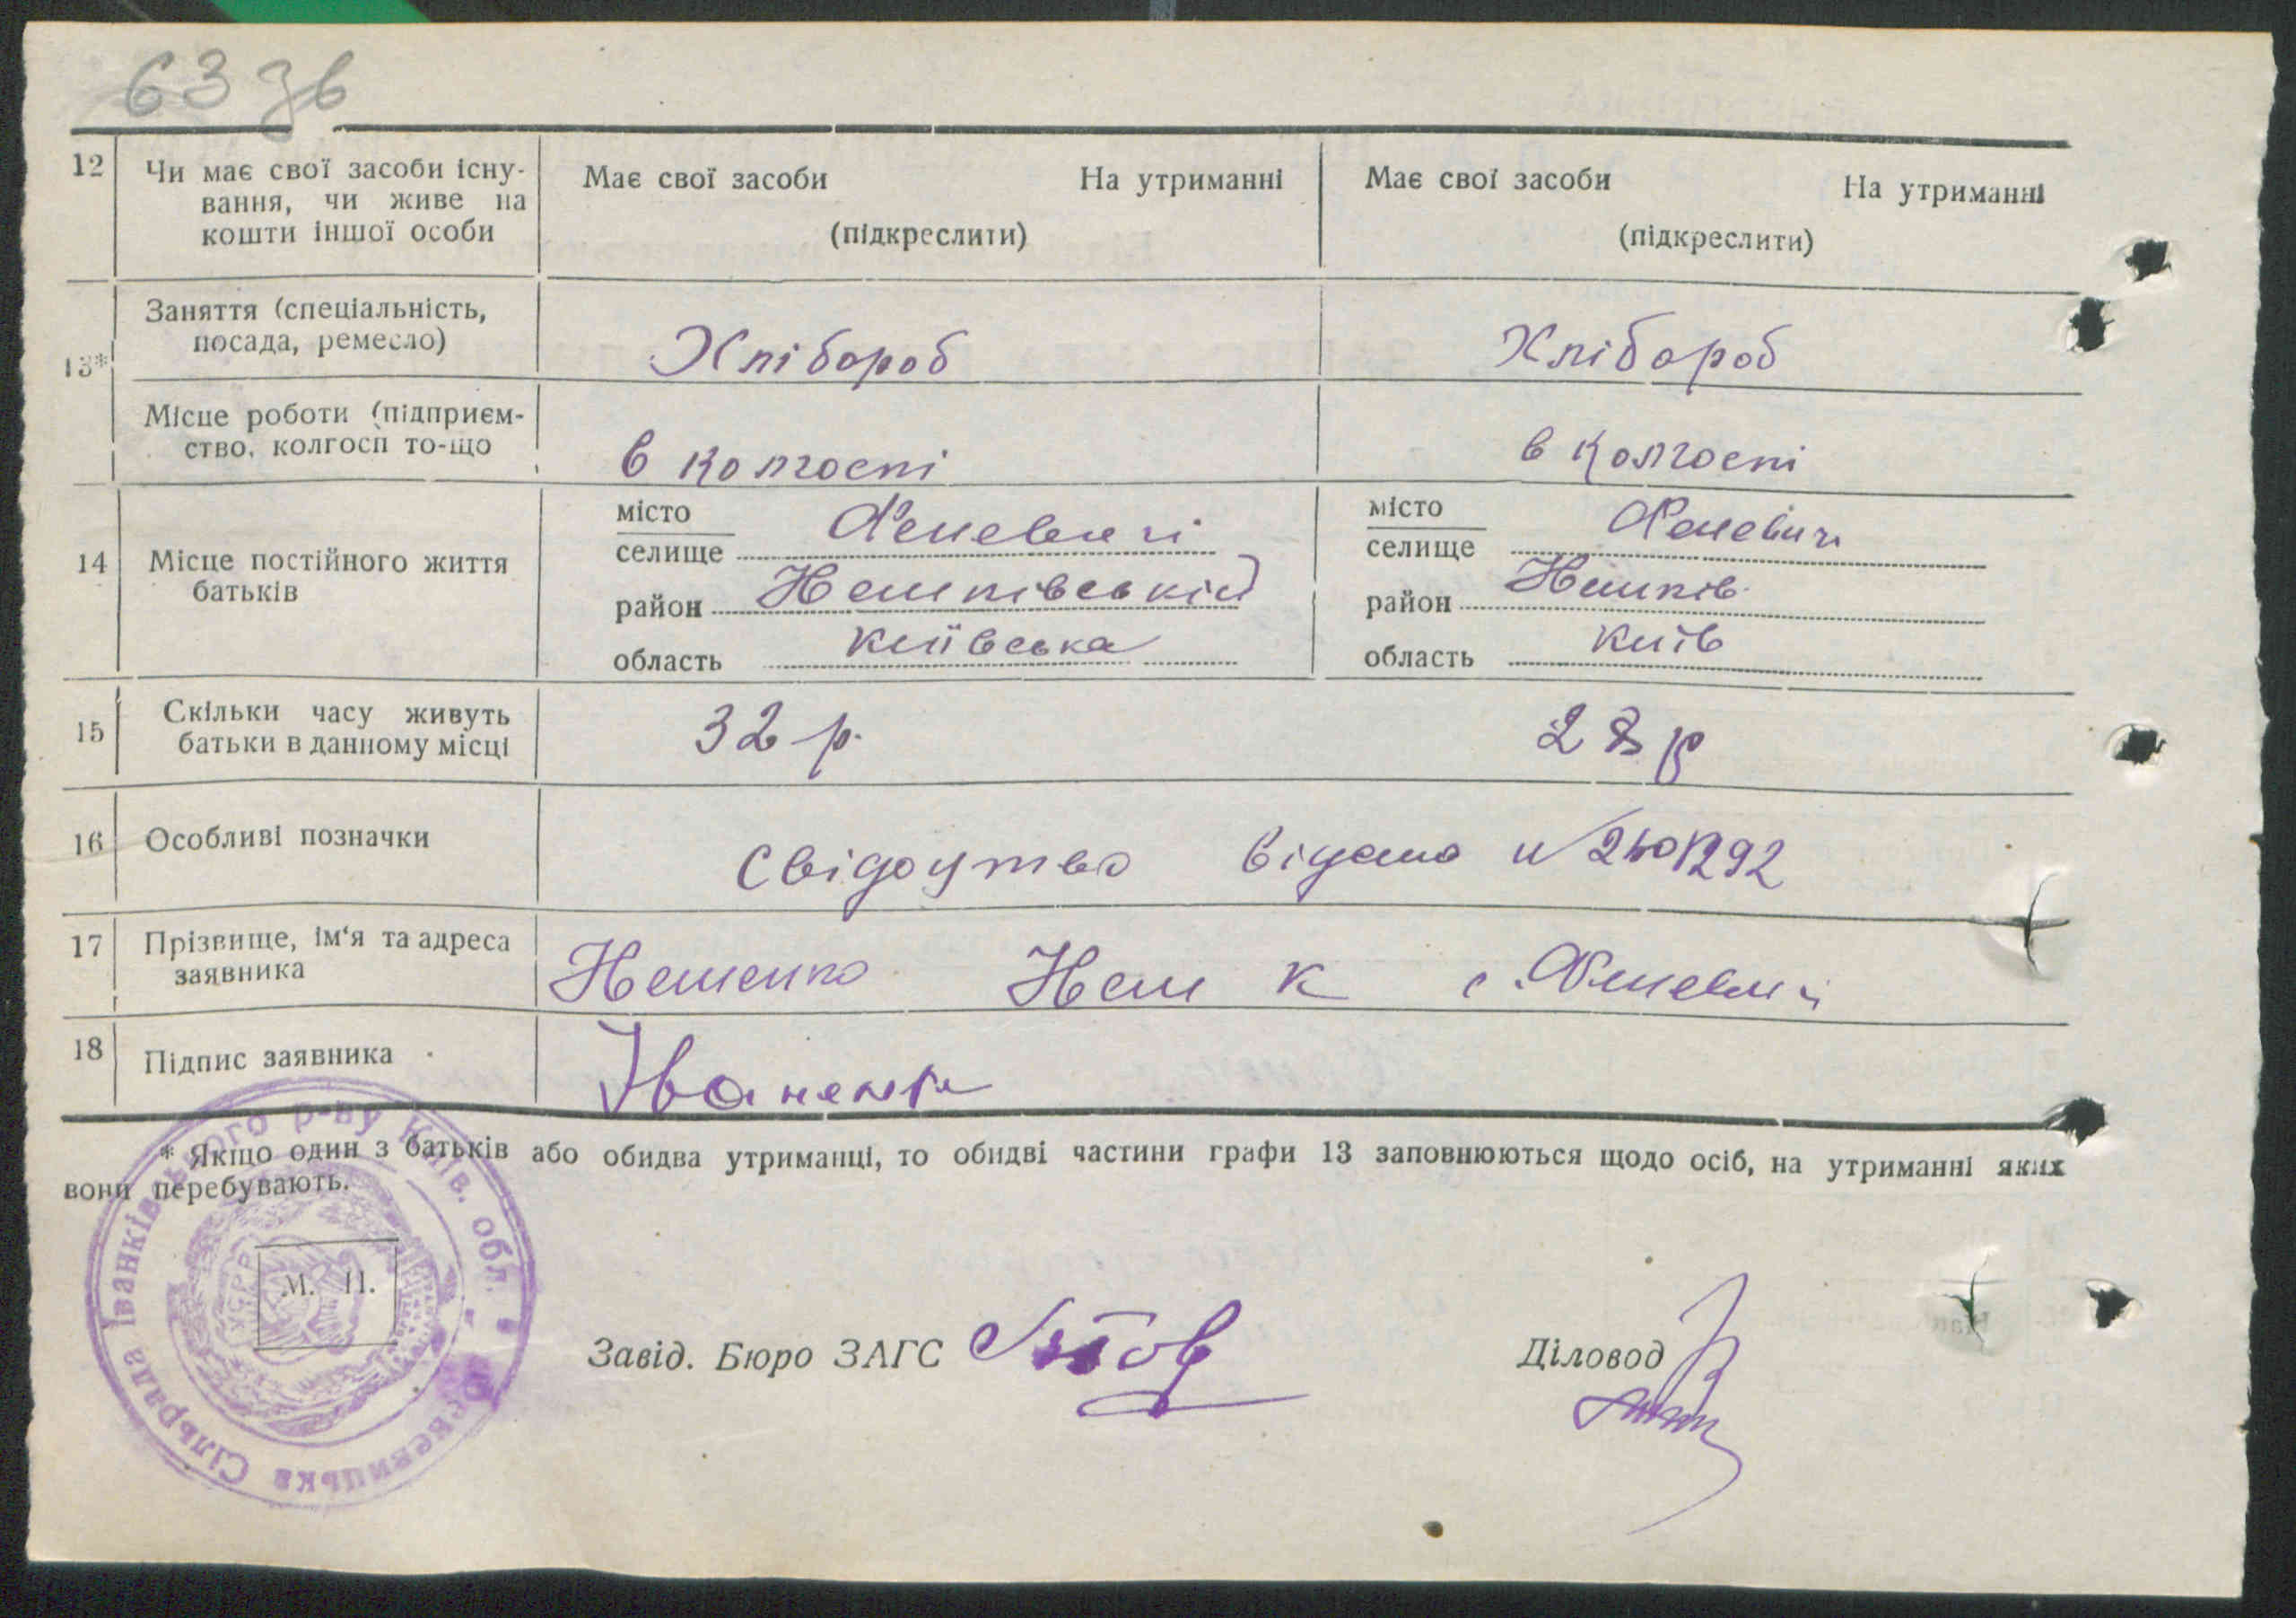 63 зв
12 Чи має свої засоби існу- Має свої засоби На утриманні Має свої засоби На утриманні
вання, чи живе на
кошти іншої особи (підкреслити) (підкреслити)
13* Заняття (спеціальність,
посада, ремесло) Хлібороб Хлібороб
Місце роботи (підприєм-
ство, колгосп то-що в колгоспі в колгоспі
місто місто
селище селище
14 Місце постійного життя
батьків район район
область київська область київ
15 Скільки часу живуть 32 р. 28 р
батьки в данному місці
16 Особливі позначки Свідоцтво відано
17 Прізвище, ім‘я та адреса
заявника с.
18 Підпис заявника
* Якщо один з батьків або обидва утриманці, то обидві частини графи 13 заповнюються щодо осіб, на утриманні яких
вони перебувають.
М. П.
Завід. Бюро ЗАГС Діловод
Сільрада Іванківського р-ву Київ. обл.
УСРР